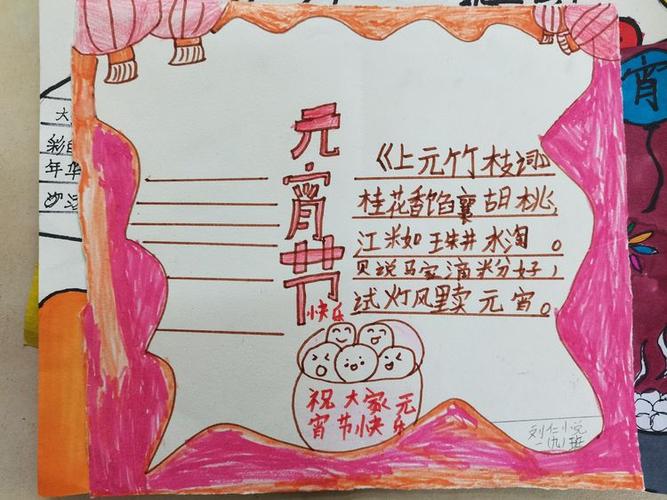 元宵节
快乐
《上元竹枝词》
桂花香馅襄胡桃,
江米如珠井水淘。
见说马家滴粉好,
试灯风里卖元宵。
祝大家元
宵节快乐
刘仁小悦
一(九)班
宵
大
年华